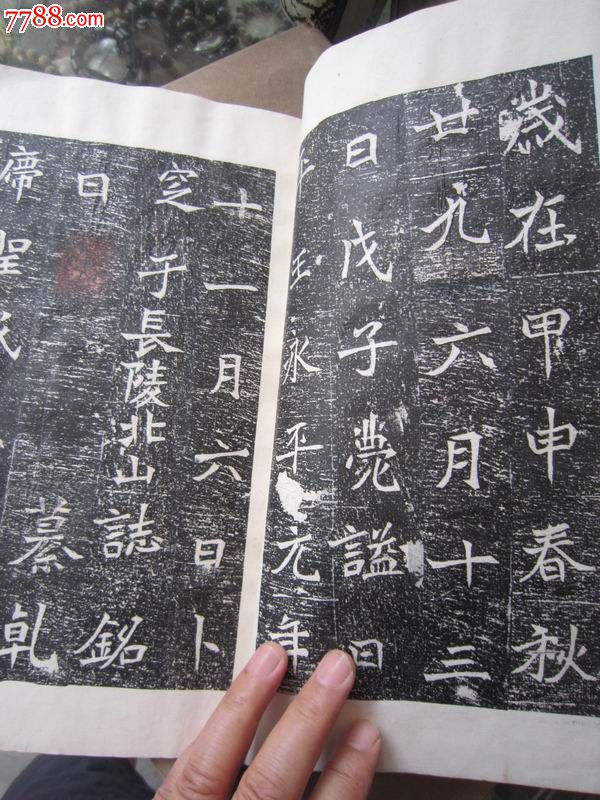 歲在甲申春秋
廿九六月十三
日戊子薨謚曰
平王永平元年
十一月六日卜
窆于長陵北山誌銘
曰 乾
聖
7788.com